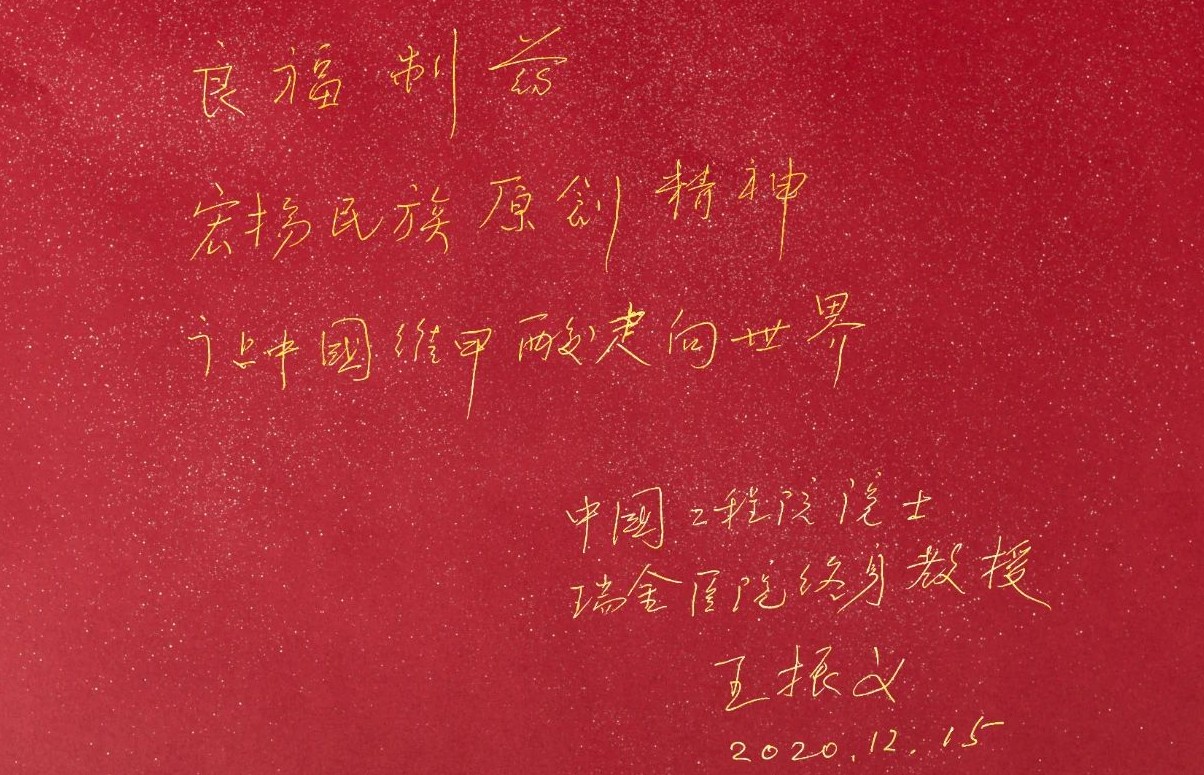 良福制药
宏扬民族原創精神
让中國维甲酸走向世界
中國工程院院士
瑞金医院终身教授
王振义
2020.12.15